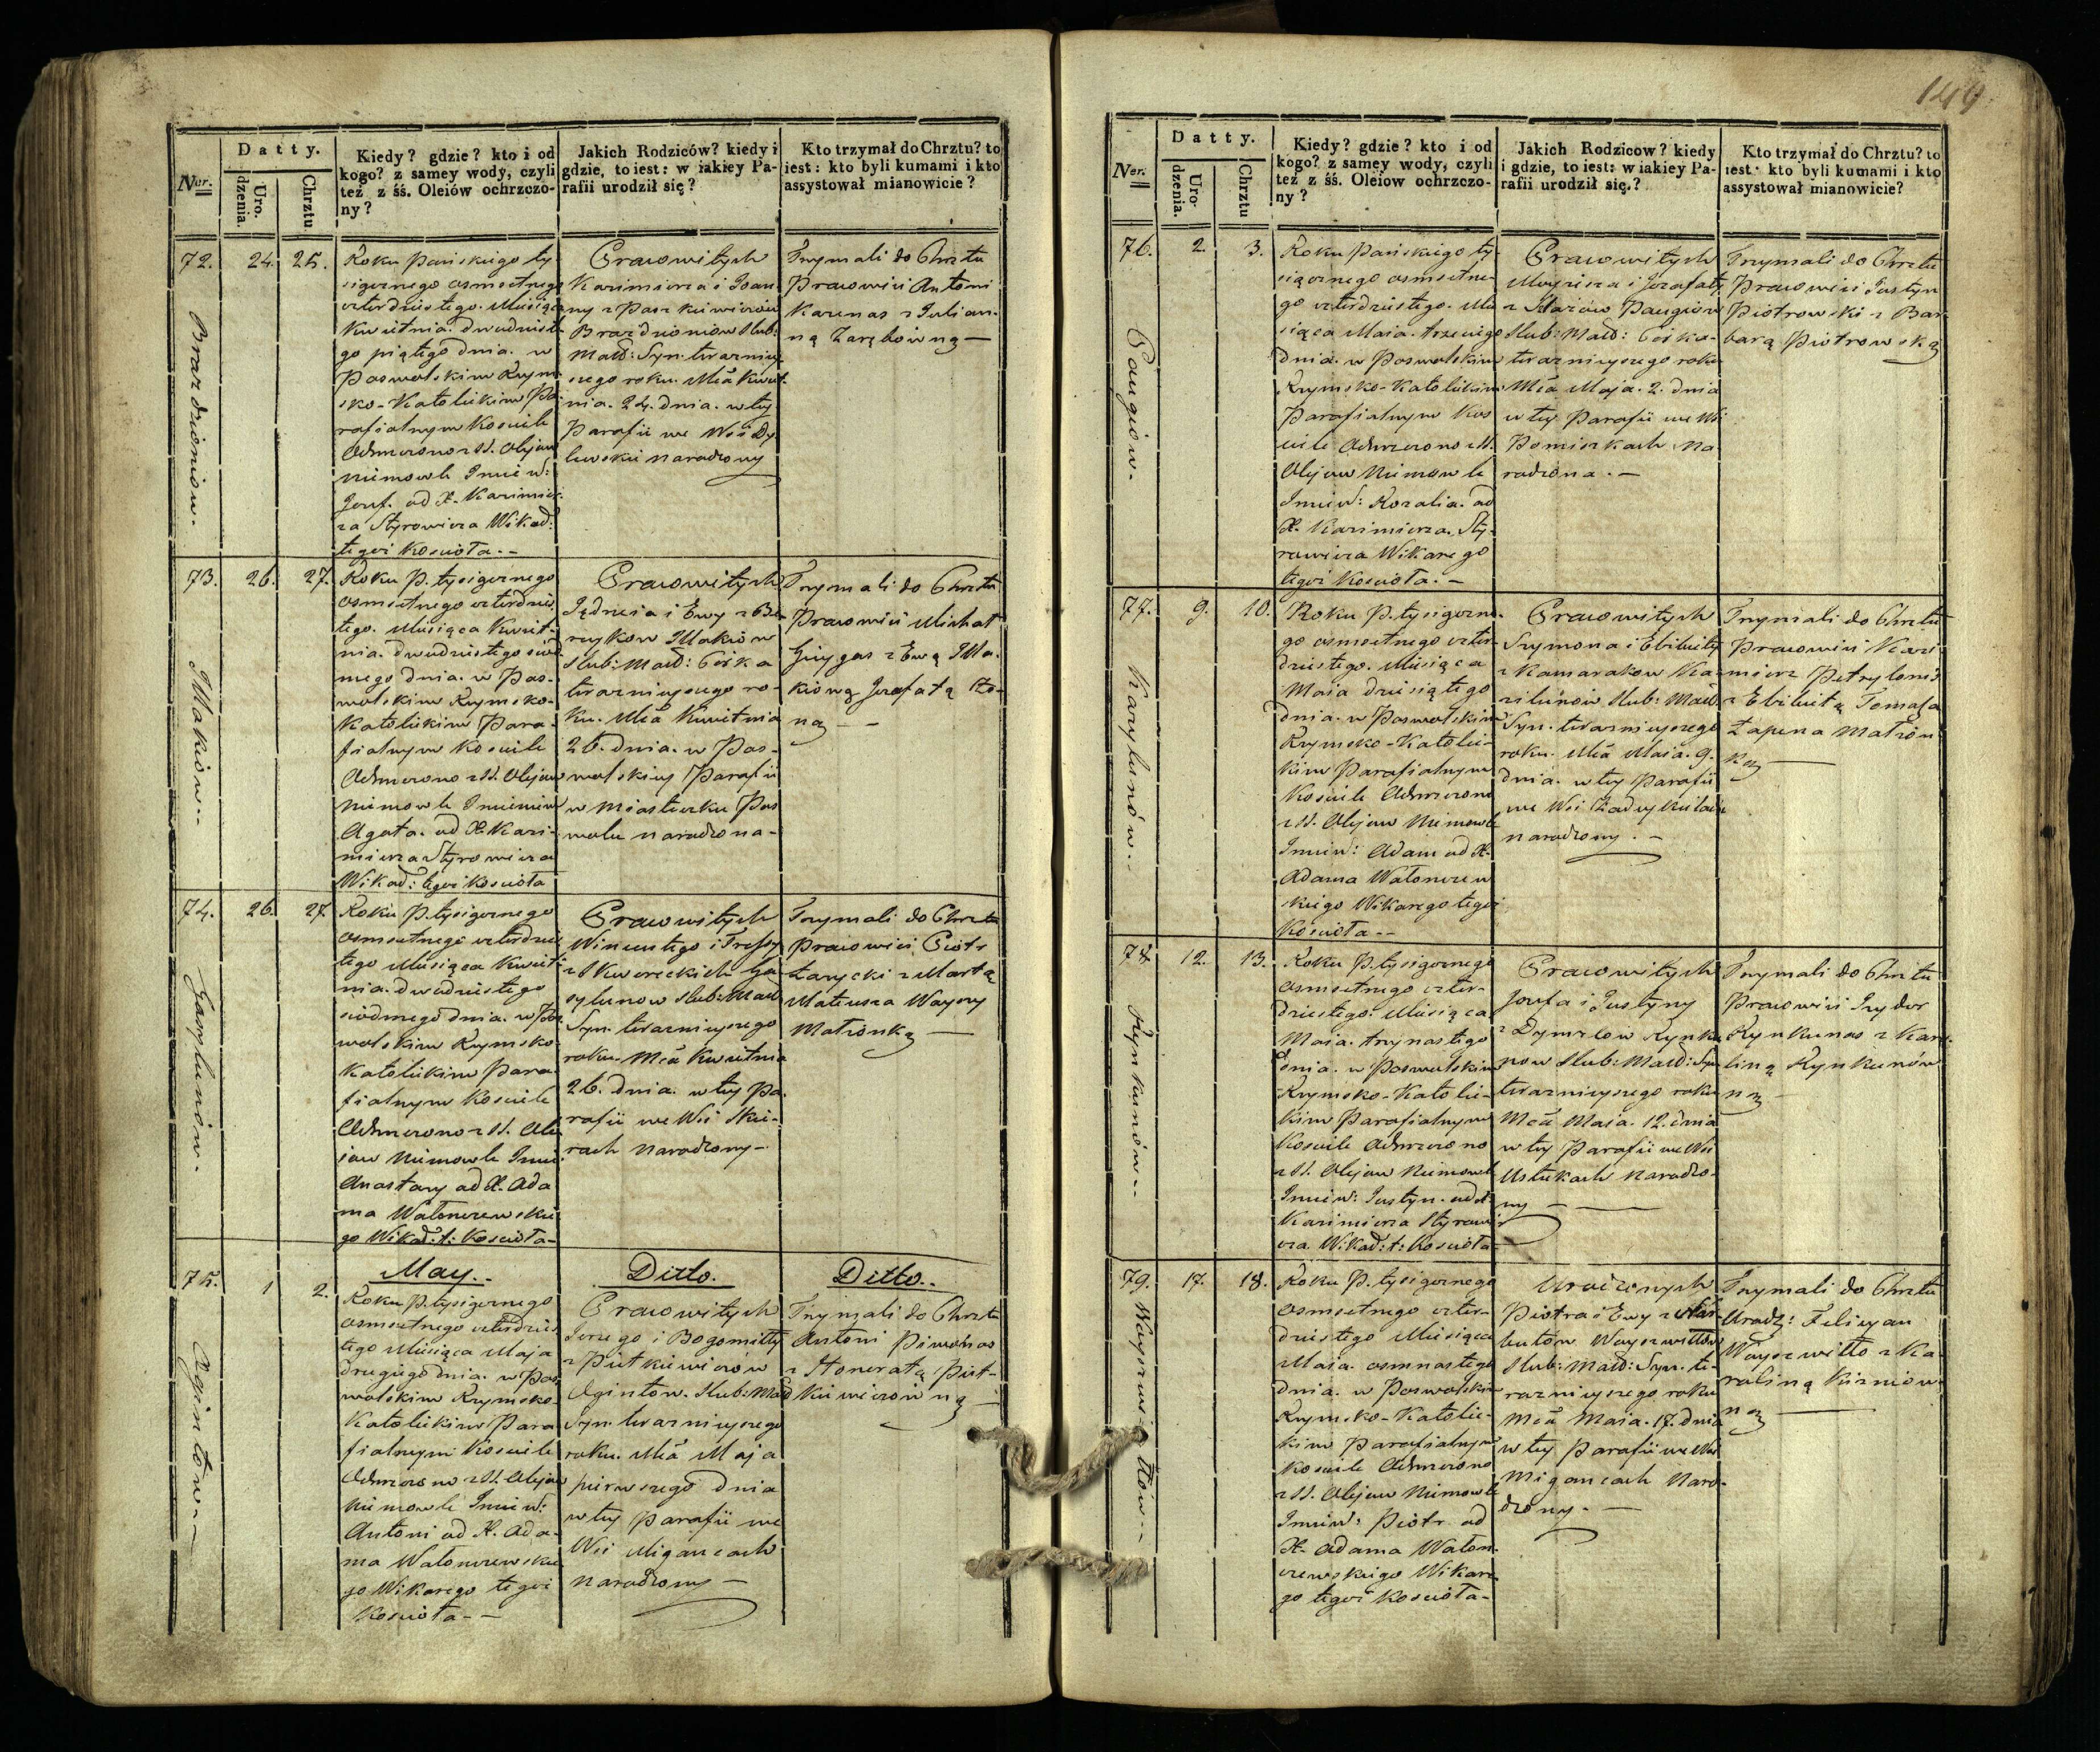 Ner.
Datty.
Uro.
dzenia.
Chrztu
Kiedy? gdzie? kto i od
kogo? z samey wody, czyli
też z śś. Oleiów ochrzczo-
ny?
Jakich Rodziców? kiedy i
gdzie, to iest: w iakiey Pa-
rafii urodził się?
Kto trzymał do Chrztu? to
iest: kto byli kumami i kto
assystował mianowicie?
72. 24. 25.
Brazdzioniow.
Roku Pańskiego ty-
siącznego osmsetnego
czterdziestego. Miesiąca
Kwietnia. dwudzieste-
go piątego dnia. w
Poswolskim Rzym-
sko-Katolickim Pa-
rafialnym Kosciele
Ochrzczono z SS. Olejow
niemowle Imiew:
Jozef. od X. Kazimie-
rza Styrowicza Wikad:
tegoż Kościoła.-
Pracowitych
Kazimierza i Joan-
ny z Paszkiewiczów
Brazdzioniów Slub:
Małż: Syn. terazniey-
szego roku. Mca Kwiet-
nia. 24. dnia. w tey
Parafii we Wsi Dy-
lewskie narodzony
Trzymali do Chrztu
Pracowici Antoni
Karenas z Julian-
ną Zarębowną —
73. 26. 27.
Makiow..
Roku P. tysiącznego
osmsetnego czterdzies-
tego. Miesiąca Kwiet-
nia. dwudziestego siód-
mego dnia. w Pos-
wolskim Rzymsko-
Katolickim Para-
fialnym Kosciele
Ochrzczono z SS. Olejow
niemowle Imieniem
Agata. od X. Kazi-
mierza Styrowicza
Wikad: tegoż Kościoła
Pracowitych
Jędrzeia i Ewy z Be-
rzykow Makiow
Slub: Małż: Córka
teraznieyszego ro-
ku. Mca Kwietnia
26. dnia. w Pos-
wolskiey Parafii
w miasteczku Pos
wolu narodzona-
Trzymali do Chrztu
Pracowici Michał
Giiygas z Ewą Ma-
kiową Jozafatą żo-
ną — —
74. 26. 27
Gasylunów.
Roku P. tysiącznego
osmsetnego czterdzies
tego Miesiąca Kwiet
nia. dwudziestego
siódmego dnia. w Pos
wolskim Rzymsko-
Katolickim Para
fialnym Kosciele
Ochrzczono z SS. Ole
iow niemowle Imie:
Anastazy od X. Ada
ma Watonczewskie
go Wikad: t: Kościoła-
Pracowitych
Wincentego i Tressy
z Skworeckich Ga
sylunow Slub: Małż
Syn. teraznieyszego
roku. Mca Kwietnia
26. dnia. w tey Pa.
rafii we Wsi Skie-
rach narodzony-
Trzymali do Chrztu
Pracowici Piotr
Zarycki z Martą
Mateusza Wayszy
Małżonką —
May.- Ditto. Ditto..
75. 1 2.
Ogintow.—
Roku P. tysiącznego
osmsetnego czterdzies
tego Miesiąca Maja
drugiego dnia. w Pos
wolskim Rzymsko-
Katolickim Para
fialnym Kosciele
Ochrzczono z SS. Olejow
niemowle Imiew:
Antoni od X. Ada-
ma Watonczewskie
go Wikarego tegoż
Kościoła--
Pracowitych
Jerzego i Bogomilty
z Pietkiewiczów
Ogintow. Slub: Małż
Syn. teraznieyszego
roku. Mca Maja
pierwszego dnia
w tey Parafii we
Wsi Migancach
narodzony —
Trzymali do Chrztu
Antoni Piwonas
z Honoratą Piet-
kiewiczówną —
149.
Ner.
Datty.
Uro-
dzenia.
Chrztu
Kiedy? gdzie? kto i od
kogo? z samey wody, czyli
też z śś. Oleiow ochrzczo-
ny?
Jakich Rodzicow? kiedy
i gdzie, to iest: w iakiey Pa-
rafii urodził się.?
Kto trzymał do Chrztu? to
iest: kto byli kumami i kto
assystował mianowicie?
76. 2. 3.
Paugiow.
Roku Pańskiego ty-
siącznego osmsetne-
go czterdziestego. Mie
siąca Maia. trzeciego
dnia. w Poswolskim
Rzymsko-Katolickim
Parafialnym Kos
ciele Ochrzczono z SS.
Olejow niemowle
Imiew: Rozalia. od
X. Kazimierza. Sty-
rowicza Wikarego
tegoż Kościoła.-
Pracowitych
Maycieia i Jozafaty
z Starow Paugiow
Slub: Małż: Córka-
teraznieyszego roku
Mca Maja. 2. dnia
w tey Parafii we Wsi
Pamiszkach Na
rodzona.-
Trzymali do Chrztu
Pracowici Justyn
Piotrowski z Bar
barą Piotrowską
77. 9. 10.
Kazylunów..
Roku P. tysiączne-
go osmsetnego czter-
dziestego. Miesiąca
Maia dziesiątego
dnia. w Poswolskim
Rzymsko-Katolic-
kim Parafialnym
Kosciele Ochrzczono
z SS. Olejow niemowle
Imiew: Adam od X.
Adama Watonczew
skiego Wikarego tegoż
Kościoła--
Pracowitych
Szymona i Elżbiety
z Kamarakow Ka-
zilunow Slub: Małż.
Syn. teraznieyszego
roku. Mca Maia. 9.
dnia. w tey Parafii
we Wsi Zadeykielach
narodzony.-
Trzymali do Chrztu
Pracowici Kazi-
mierz Petrylonis
z Elżbietą Tomasza
Łapena Małżon
ką —
78 12. 13.
Rynkunów..
Roku P. tysiącznego
osmsetnego czter-
dziestego. Miesiąca
Maia. trzynastego
dnia. w Poswolskim
Rzymsko-Katolic-
kim Parafialnym
Kosciele Ochrzczono
z SS. Olejow niemowle
Imiew: Justyn. od X
Kazimierza Styrowi
cza. Wikad: t: Kościoła-
Pracowitych
Jozefa i Justyny
z Dymszow Rynku
now Slub: Małż: Syn
teraznieyszego roku
Mca Maia. 12. dnia
w tey Parafii we Wsi
Ustukach narodzo-
ny —
Trzymali do Chrztu
Pracowici Izydor
Rynkunas z Karo-
liną Rynkunów
ną
79. 17. 18.
Wayszwiłłów..
Roku P. tysiącznego
osmsetnego czter-
dziestego Miesiąca
Maia. osmnastego
dnia. w Poswolskim
Rzymsko-Katolic-
kim Parafialnym
Kosciele Ochrzczono
z SS. Olejow niemowle
Imiew: Piotr. od
X. Adama Waton-
czewskiego Wikare
go tegoż Kościoła-
Urodzonych
Piotra i Ewy z Nar-
butów Wayszwiłłów
Slub: Małż: Syn. te-
raznieyszego roku
Mca Maia. 17. dnia
w tey Parafii we Wsi
Migancach Naro-
dzony.-
Trzymali do Chrztu
Urodz: Felicyan
Wayszwiłło z Ka-
roliną Kirniów
ną —